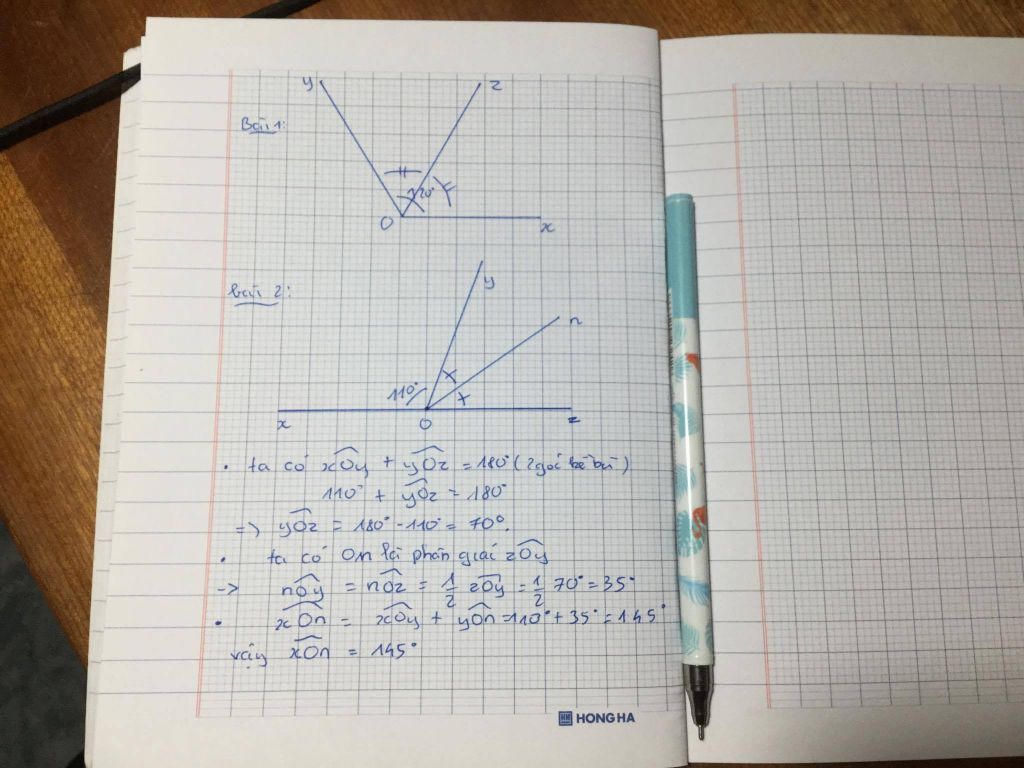 y z
Bài 1:
120°
O x
y
bài 2:
n
110°
x O z
• ta có xOy + yOz = 180° (2 góc kề bù)
110° + yOz = 180°
=> yOz = 180° - 110° = 70°.
• ta có On là phân giái zOy
-> nOy = nOz = 1/2 zOy = 1/2 70° = 35°
• xOn = xOy + yOn = 110° + 35° = 145°
vậy xOn = 145°
HH HONG HA